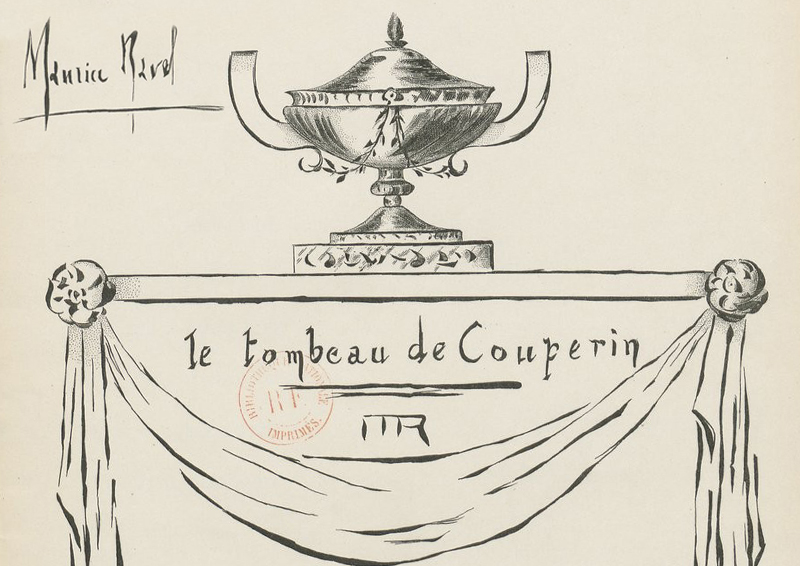 Maurice Ravel
le tombeau de Couperin
MR
BIBLIOTHÈQUE NATIONALE
R F
IMPRIMÉS